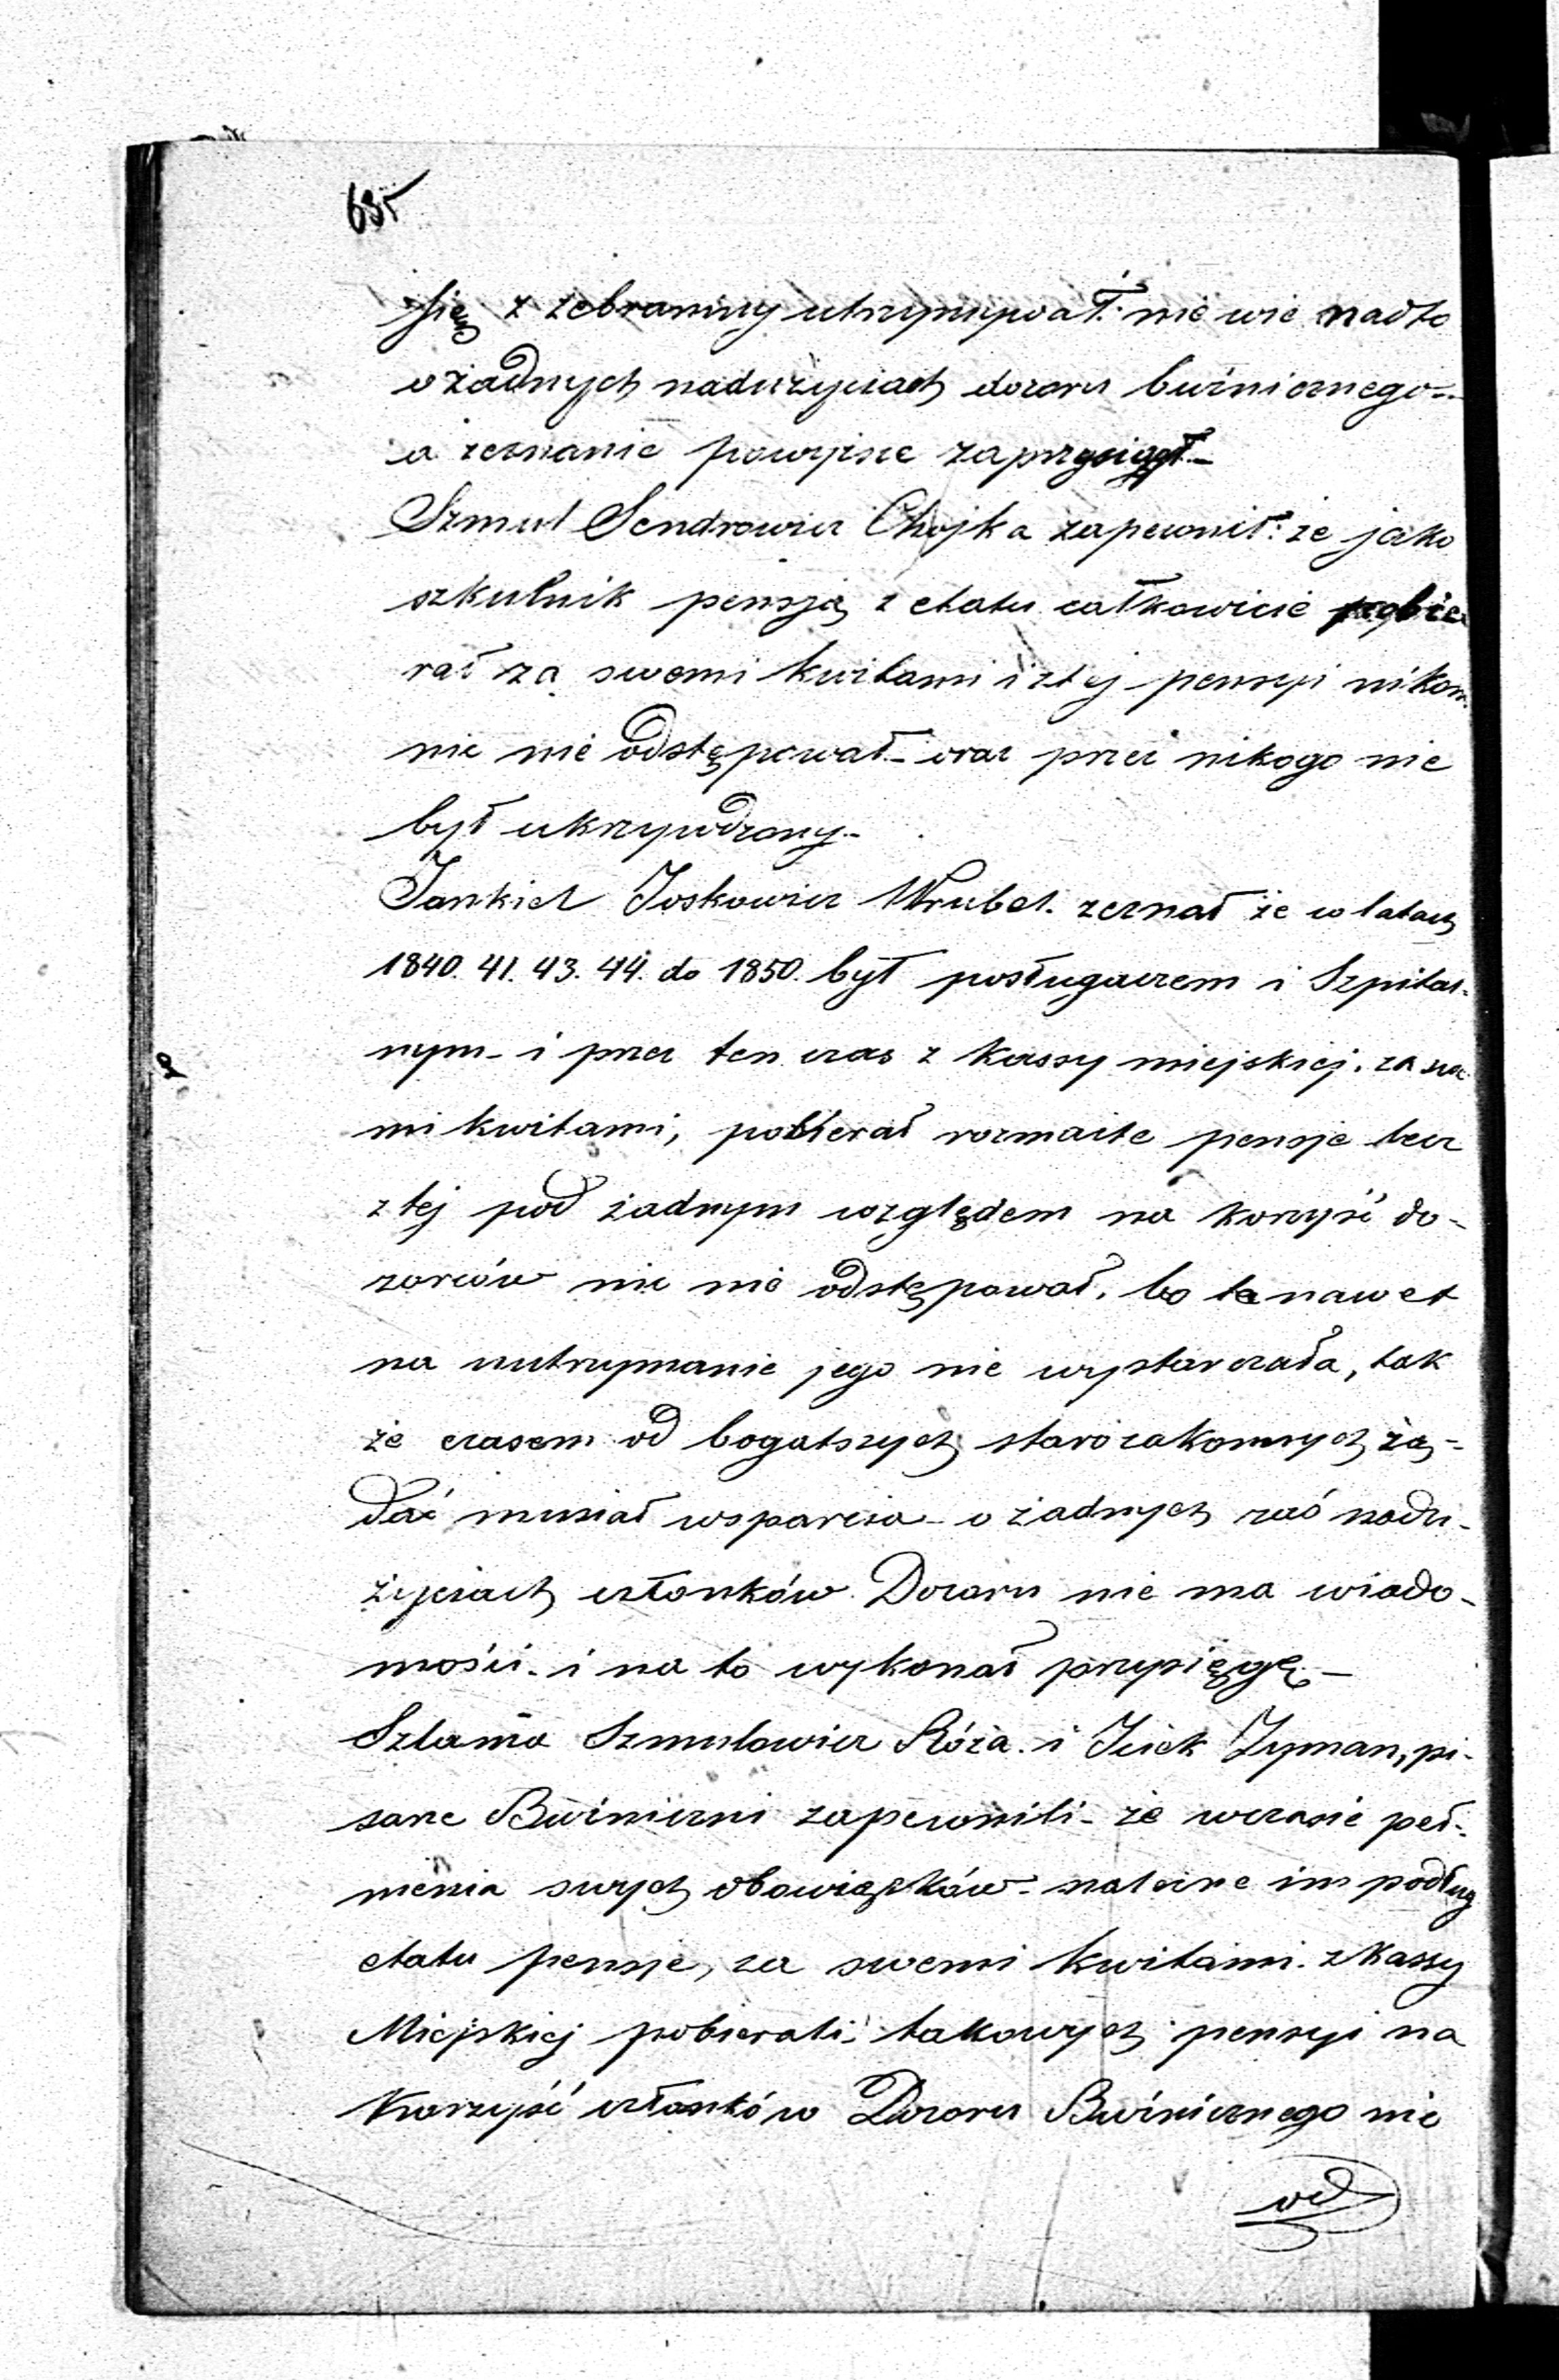 635
się z żebraniny utrzymywał. nie wie nadto
o żadnych nadużyciach dozoru bużnicznego -
a zeznanie powyższe zaprzysiągł -
Szmul Sendrowicz Chojka zapewnił: że jako
szkulnik pensją z etatu całkowicie pobie
rał za swemi kwitami i z tej pensyi nikom.
nic nie odstępował - oraz przez nikogo nie
był ukrzywdzony -
Jankiel Joskowicz Wrubel. zeznał że w latach
1840. 41. 43. 44. do 1850. był posługaczem i Szpital-
nym - i przez ten czas z kassy miejskiej. za swe
mi kwitami, pobierał rozmaite pensje lecz
z tej pod żadnym względem na korzyść do-
zorców nic nie odstępował, bo ta nawet
na uutrzymanie jego nie wystarczała, tak
że czasem od bogatszych starozakonnych żą-
dać musiał wsparcia - o żadnych zaś nadu-
życiach członków Dozoru nie ma wiado-
mości. i na to wykonał przysięgę -
Szlama Szmulowicz Róża. i Icek Zyman, pi-
sarze Bużniczni zapewnili - że w czasie peł-
nienia swych obowiązków - należne im podług
etatu pensje, za swemi kwitami. z Kassy
Miejskiej pobierali. takowych pensyi na
Korzyść członków Dozoru Bużnicznego nie
od